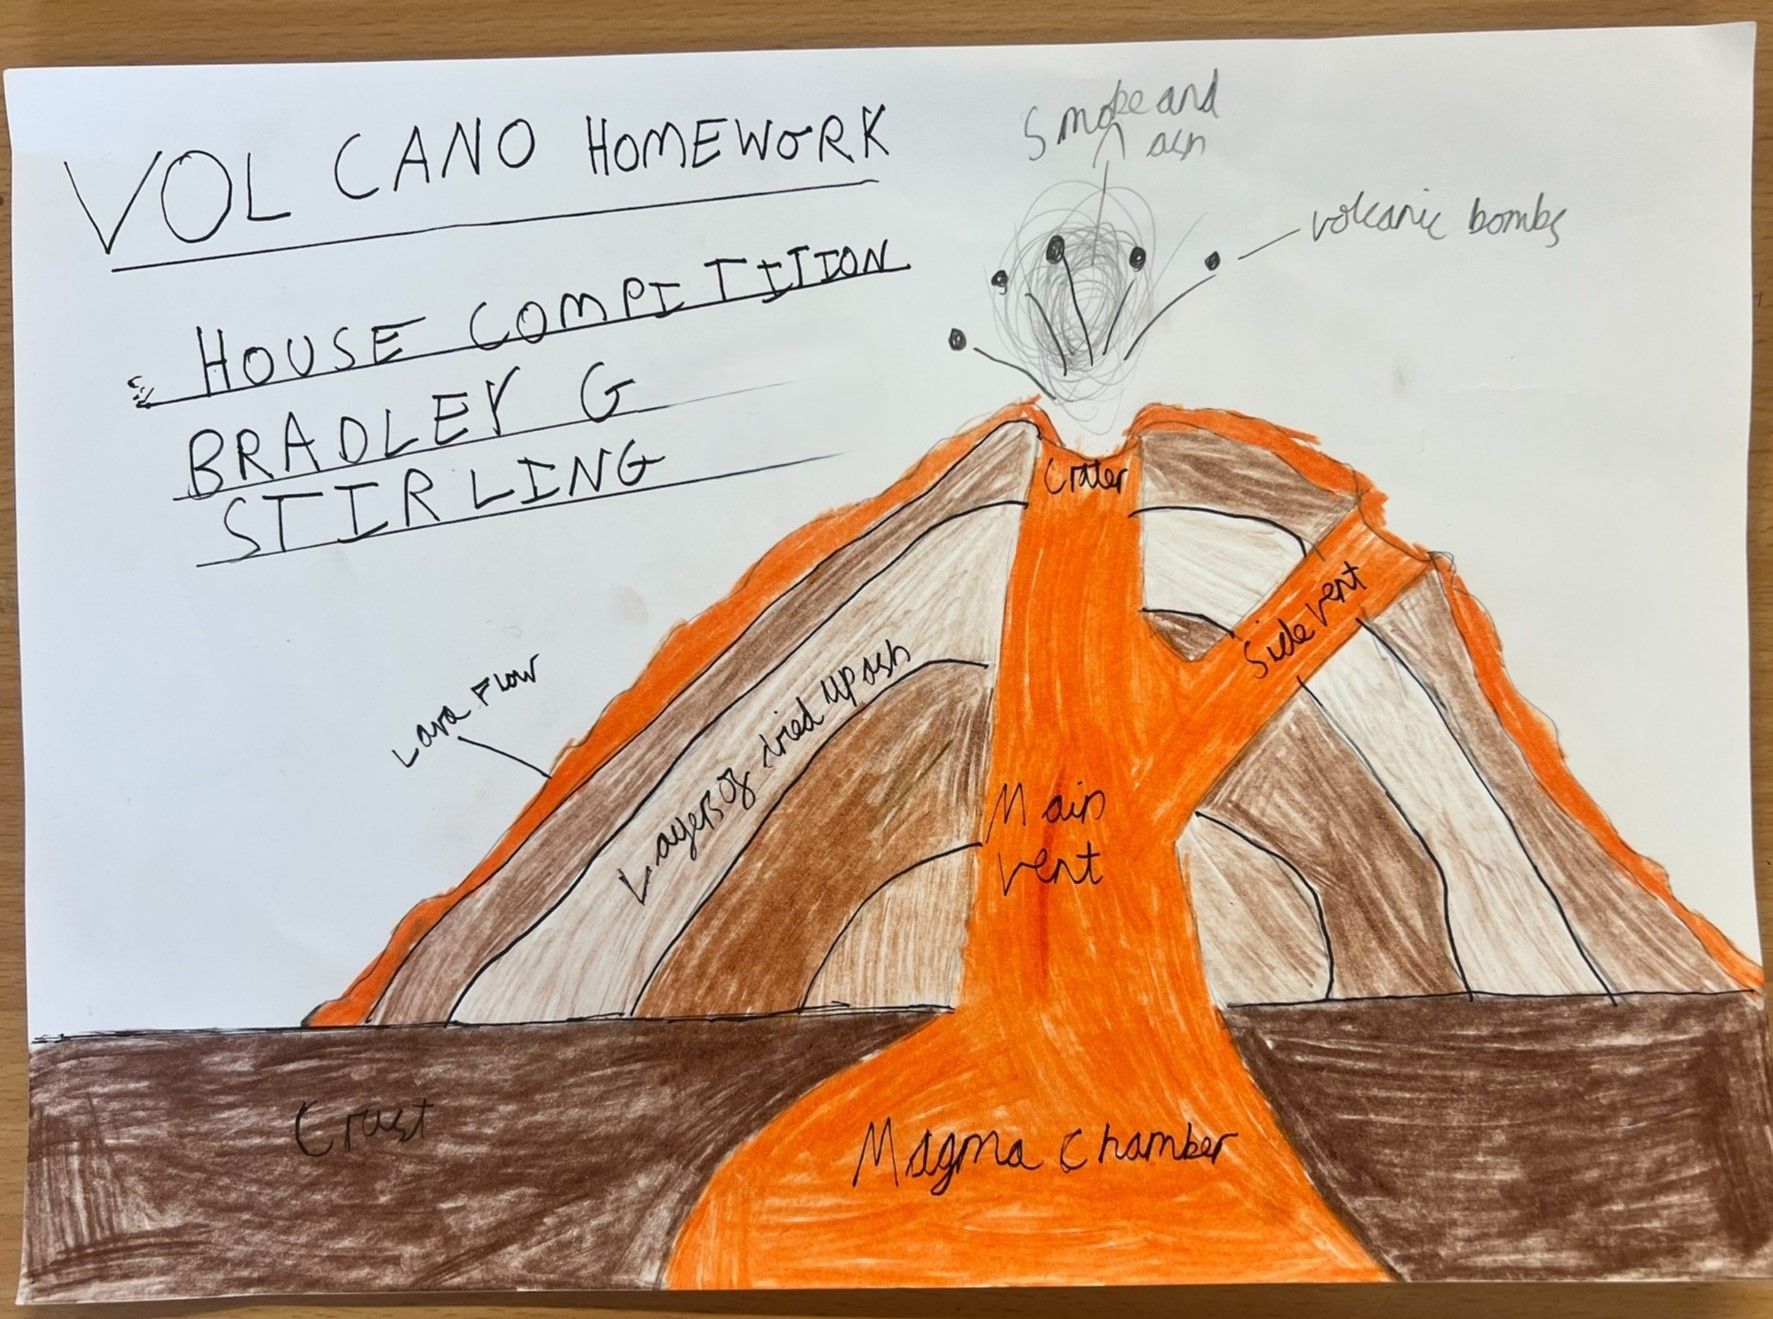 VOLCANO HOMEWORK
HOUSE COMPITITION
BRADLEY G
STIRLING
Smoke and
ash
volcanic bombs
Crater
Side vent
Lava Flow
Layers of dried up ash
Main
vent
Crust
Magma Chamber